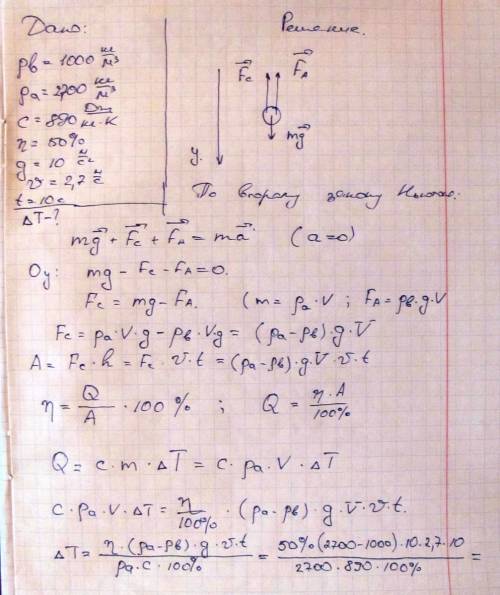 Дано:
Решение.
ρв = 1000 кг/м³
ρа = 2700 кг/м³
c = 890 Дж/кг·К
η = 50%
g = 10 м/с²
v = 2,7 м/с
t = 10 с
ΔT-?
F⃗c F⃗A
mg⃗
y
По второму закону Ньютона:
mg⃗ + F⃗c + F⃗A = ma⃗ (a=0)
Oy: mg - Fc - FA = 0.
Fc = mg - FA. (m = ρa·V ; FA = ρв·g·V
Fc = ρa·V·g - ρв·V·g = (ρa-ρв)·g·V
A = Fc·h = Fc·v·t = (ρa-ρв)·g·V·v·t
η = Q/A · 100% ; Q = η·A/100%
Q = c·m·ΔT = c·ρa·V·ΔT
c·ρa·V·ΔT = η/100% · (ρa-ρв)·g·V·v·t.
ΔT = η·(ρa-ρв)·g·v·t/ρa·c·100% = 50%(2700-1000)·10·2,7·10/2700·890·100% =